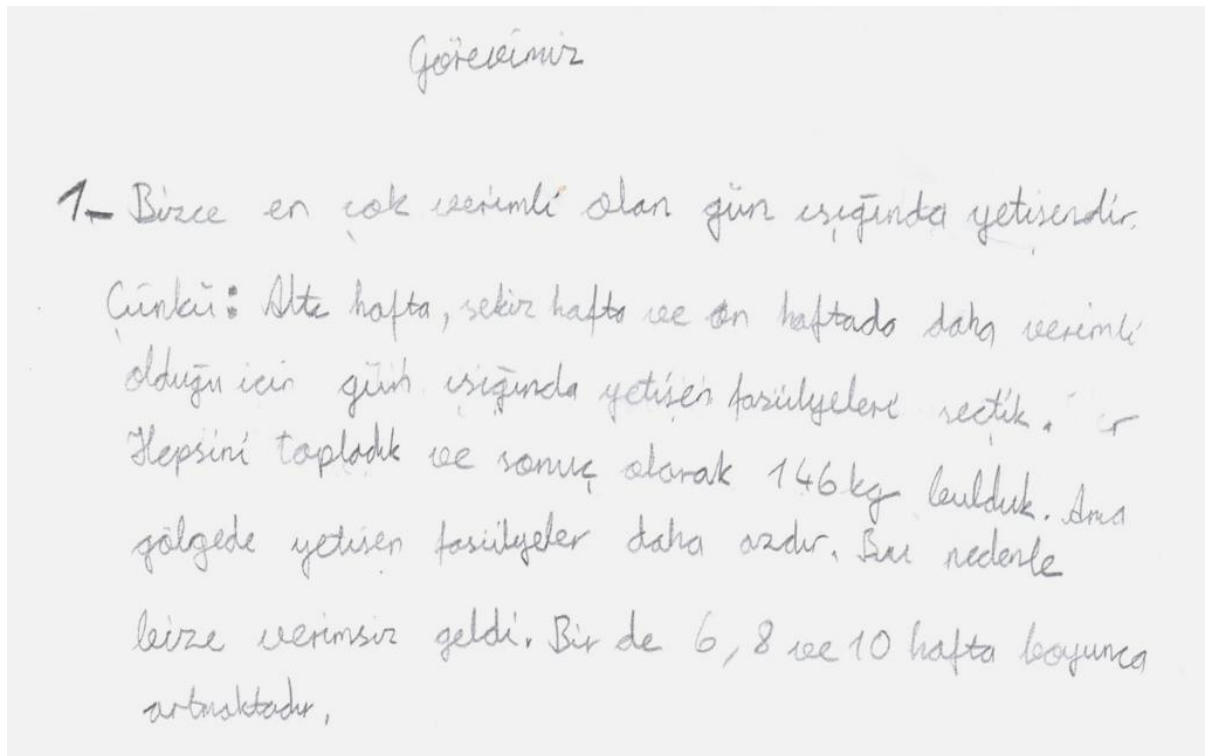 Görevimiz
1- Bizce en çok verimli olan gün ışığında yetişendir.
Çünkü: Altı hafta, sekiz hafta ve on haftada daha verimli
olduğu için gün ışığında yetişen fasülyeleri seçtik.
Hepsini topladık ve sonuç olarak 146 kg bulduk. Ama
gölgede yetişen fasülyeler daha azdır. Bu nedenle
bize verimsiz geldi. Bir de 6, 8 ve 10 hafta boyunca
artmaktadır.